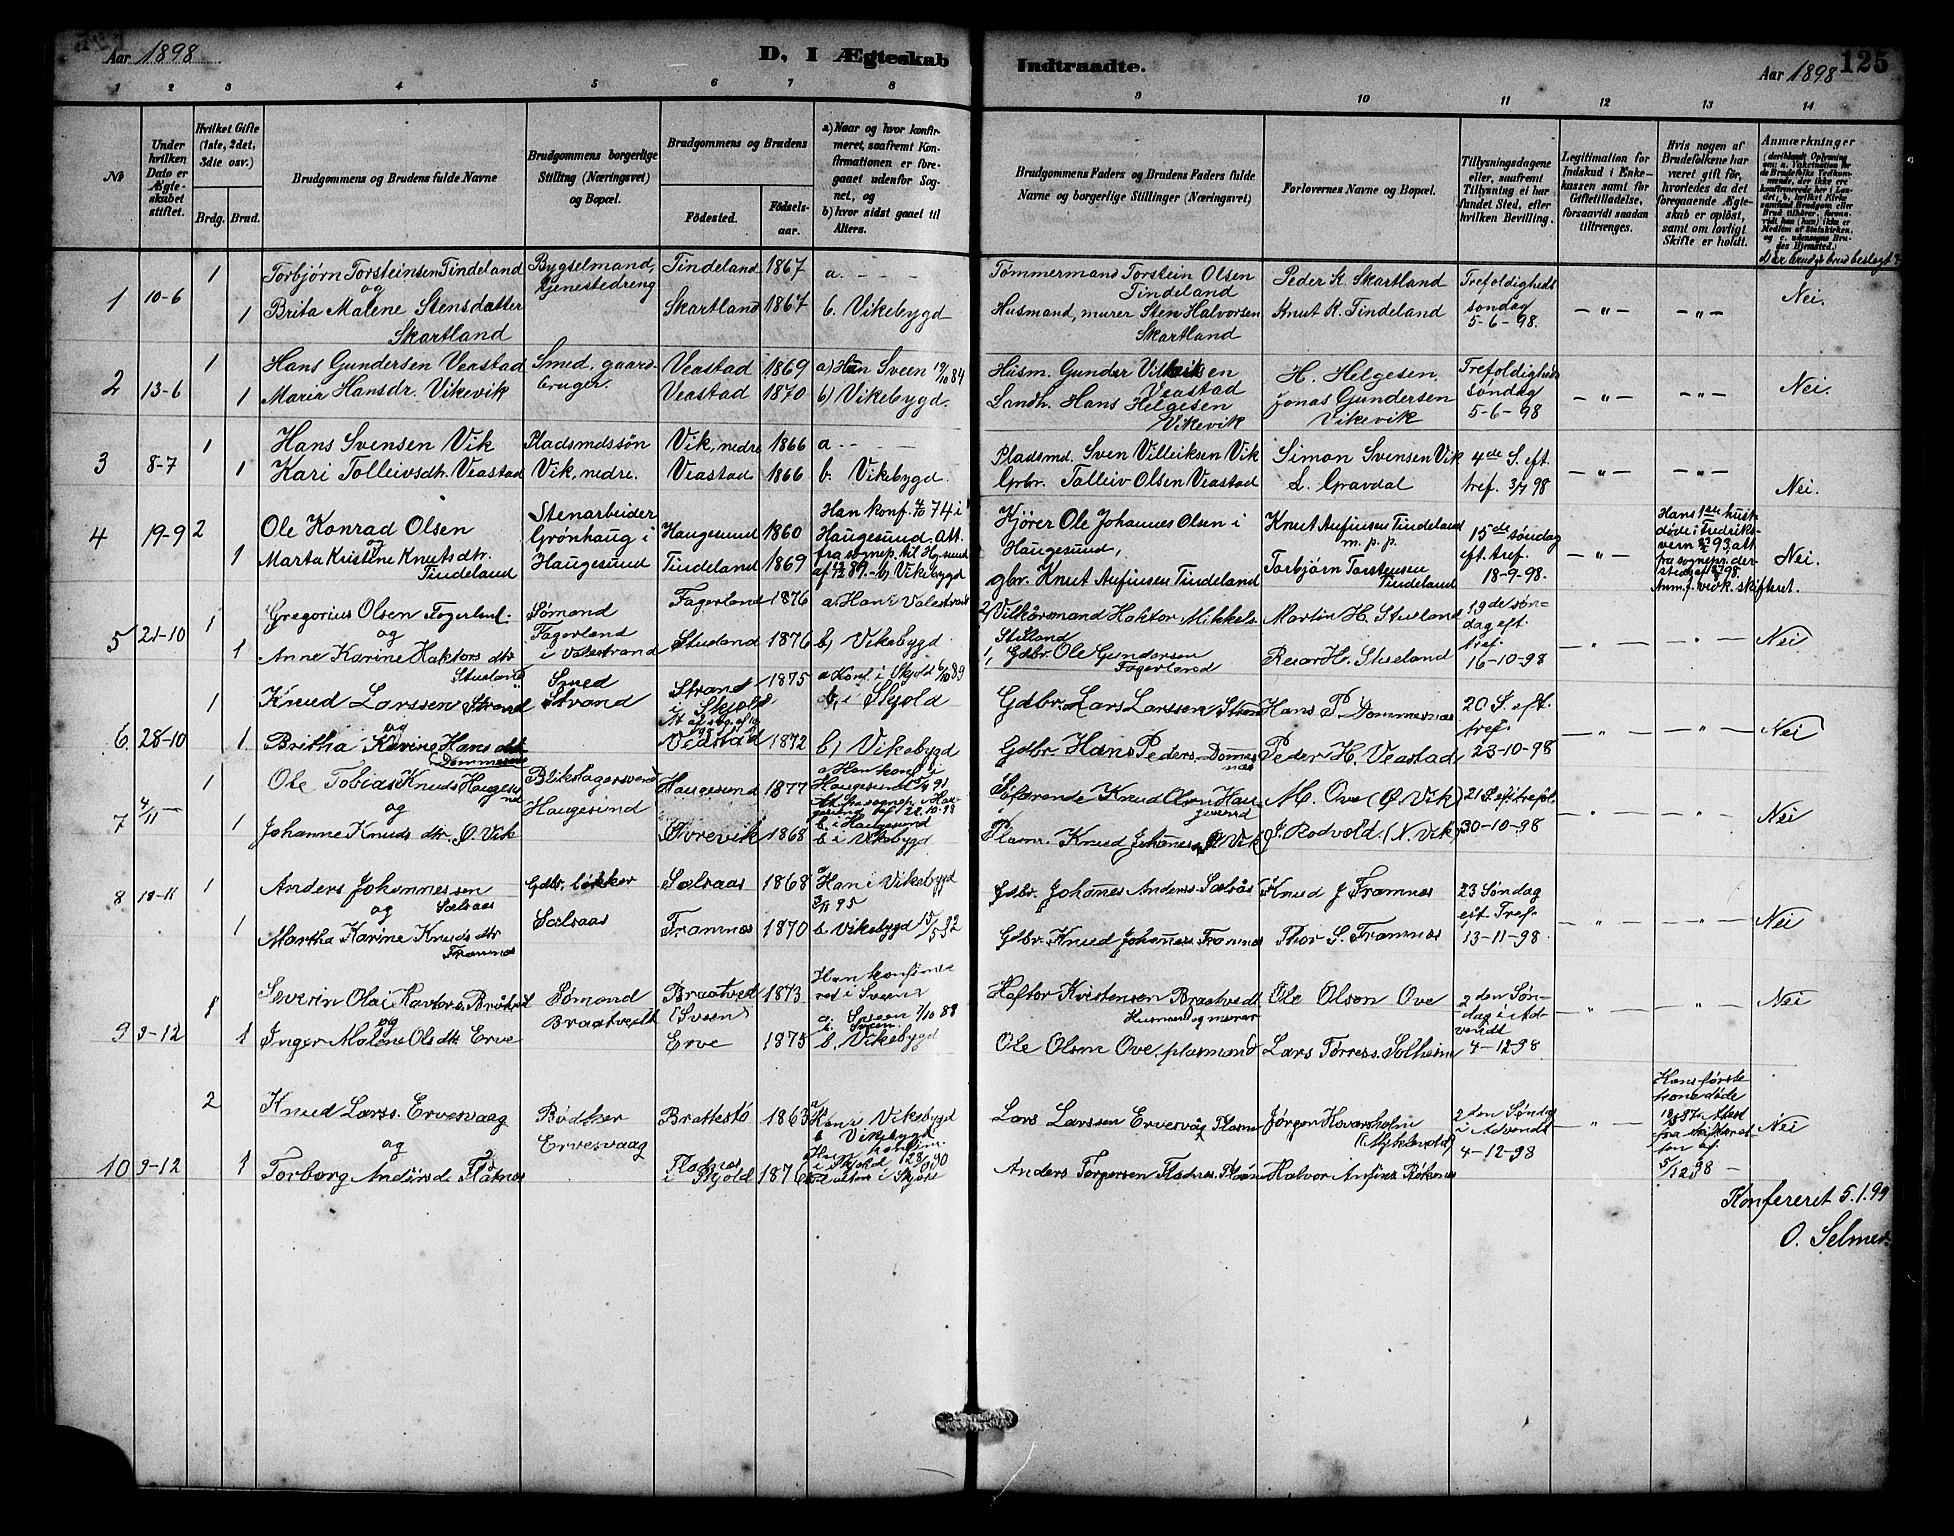 Aar 1898
D, I Ægteskab
Indtraadte.
Aar 1898
125
1 2 3 4 5 6 7 8 9 10 11 12 13 14
No
Under hvilken Dato er Ægteskabet stiftet.
Hvilket Gifte (1ste, 2det, 3die osv.)
Brdg. Brud.
Brudgommens og Brudens fulde Navne
Brudgommens borgerlige Stilling (Næringsvei) og Bopæl.
Brudgommens og Brudens
Fødested.
Fødselsaar.
a) Naar og hvor konfirmeret, saafremt Konfirmationen er foregaaet udenfor Sognet, og
b) hvor sidst gaaet til Alters.
Brudgommens Faders og Brudens Faders fulde Navne og borgerlige Stillinger (Næringsvei)
Forlovernes Navne og Bopæl.
Tillysningsdagene eller, saafremt Tillysning ei har fundet Sted, efter hvilken Bevilling.
Legitimation for Indskud i Enkekassen samt for Giftetilladelse, forsaavidt saadan tiltrænges.
Hvis nogen af Brudefolkene har været gift før, hvorledes da det foregaaende Ægteskab er opløst, samt om lovligt Skifte er holdt.
Anmærkninger
1 10-6 1 Torbjørn Torsteinsen Tindeland Bygselmand, Tindeland 1867 a. – – –
og tjenestedreng
1 Brita Malene Stensdatter Skartland 1867 b. Vikebygd
Skartland
Tømmermand Torstein Olsen Peder K. Skartland Trefoldigheds
Tindeland
Husmand, murer Sten Halvorsen Knut K. Tindeland søndag – " – – " – Nei.
Skartland 5-6-98.
2 13-6 1 Hans Gundersen Veastad Smed, gaard- Veastad 1869 a) Han Sveen 19/10 84
bruger.
1 Maria Hansdr. Vikevik Veastad 1870 b) Vikebygd.
Husm. Gunder
Veastad H. Helgesen. Trefoldigheds
Landh. Hans Helgesen Jonas Gundersen søndag – " – – " – Nei.
Vikevik Vikevik 5-6-98
3 8-7 1 Hans Svensen Vik Pladsmdssøn Vik, nedre 1866 a – – –
1 Kari Tolleivsdtr. Veastad Vik, nedre. Veastad 1866 b. Vikebygd.
Pladsmd. Sven Villeiksen Vik Simon Svensen Vik 4de S. eft.
Grbr. Tolleiv Olsen Veastad L. Gravdal tref. 3/7 98 – " – – " – Nei.
4 19-9 2 Ole Konrad Olsen Stenarbeider Haugesund 1860 Han konf. 74 i
og Grønhaug i Haugesund. Att.
1 Marta Kristine Knutsdtr. Haugesund Tindeland 1869 fra sognep. til Hg.sund
Tindeland af 89. – b) Vikebygd
Kjører Ole Johannes Olsen i Knut Anfinsen Tindeland 15de søndag
Haugesund, m. p. p. eft. tref. – " –
gbr. Knut Anfinsen Tindeland Torbjørn Torstensen 18-9-98.
Tindeland
Hans 1ste hust. døde i Fredriksvern 93, att. fra sognepr. dersteds Nei.
5 21-10 1 Gregorius Olsen Fagerland. Sømand Fagerland 1876 a. Han i Valestrand
og Fagerland
1 Anne Karine Haktorsdtr i Valestrand Stueland 1876 b) Vikebygd
Stueland
2, Vilkårsmand Haktor Mikkels. Martin H. Stueland 19de søn-
Stueland dag eft.
1, Gdbr. Ole Gundersen Reiar H. Stueland tref. – " – – " – Nei
Fagerland 16-10-98
6 28-10 1 Knud Larssen Strand Smed Strand 1875 a Konf. i Skjold 6/10 89
og Strand i Skjold b, i Skjold
1 Britha Karine Hansdtr Veastad 1872 b) Vikebygd
Dommesnes
Gdbr. Lars Larssen Strand Hans P Dommesnes 20 S. eft.
tref.
Gdbr. Hans Peders. Dommesnes Peder H. Veastad 23-10-98 – " – – " – Nei
7 4/11 1 Ole Tobias Knuds Haugesund Blikslagersvend Haugesund 1877 a Han konf. i
og Haugesund Haugesund
1 Johanne Knudsdtr. Ø. Vik Aarevik 1868 b. i Haugesund
b i Vikebygd
Søfarende Knud Olsen Haugesund M. Ove (Ø. Vik) 21 S. ef. tref.
Plsmr. Knud Johannes Ø Vik J. Rodvold. (N. Vik) 30-10-98 – " – – " – Nei
8 18-11 1 Anders Johannessen Gdbr. bøkker Sælsaas 1868 a Han i Vikebygd
og Sælsaas Sælsaas 95
1 Martha Karine Knudsdtr Framnæs 1870 b Vikebygd 15/5 92
Framnæs
Gdbr. Johannes Anders. Sælsås Knud J Framnæs 23 Søndag
eft Tref.
Gdbr. Knud Johannes Framnæs Thor S. Framnæs 13-11-98 – " – – " – Nei
9 9-12 1 Severin Olai Haktors. Bråtveit Sømand Braatveit 1873 Han konfirme-
og Braatveidt (Sveen) ret i Sveen
1 Inger Malene Olsdtr Erve Erve 1875 a. Sveen 7/10 88
b. Sveen
b. Vikebygd
Haktor Kristensen Braatvedt Ole Olson Ove 2den Søn-
Husmand og murer dag i Ad-
Ole Olson Ove, plasmand Lars Tørress. Solheim vendt 4-12-98 – " – – " – Nei
10 9-12 2 Knud Larss. Ervesvaag Bødtker Brattestø 1863 a Han i Vikebygd
og Ervesvaag b Vikebygd
1 Torborg Andersd. Flatnæs Flatnæs i Skjold 1876
Lars Larssen Ervesvåg Plasm Jørgen Hovarsholm 2den Søndg
(Nykkelvold) i Advendt
Anders Torgersen Flatnes. Plasm Halvor Anfins. Røknes 4-12-98 – " –
Hans første kone døde 18/8 87. Attest fra skifteretten af 5/12 98 – Nei
Konfereret 5.1.99
O. Selmer.